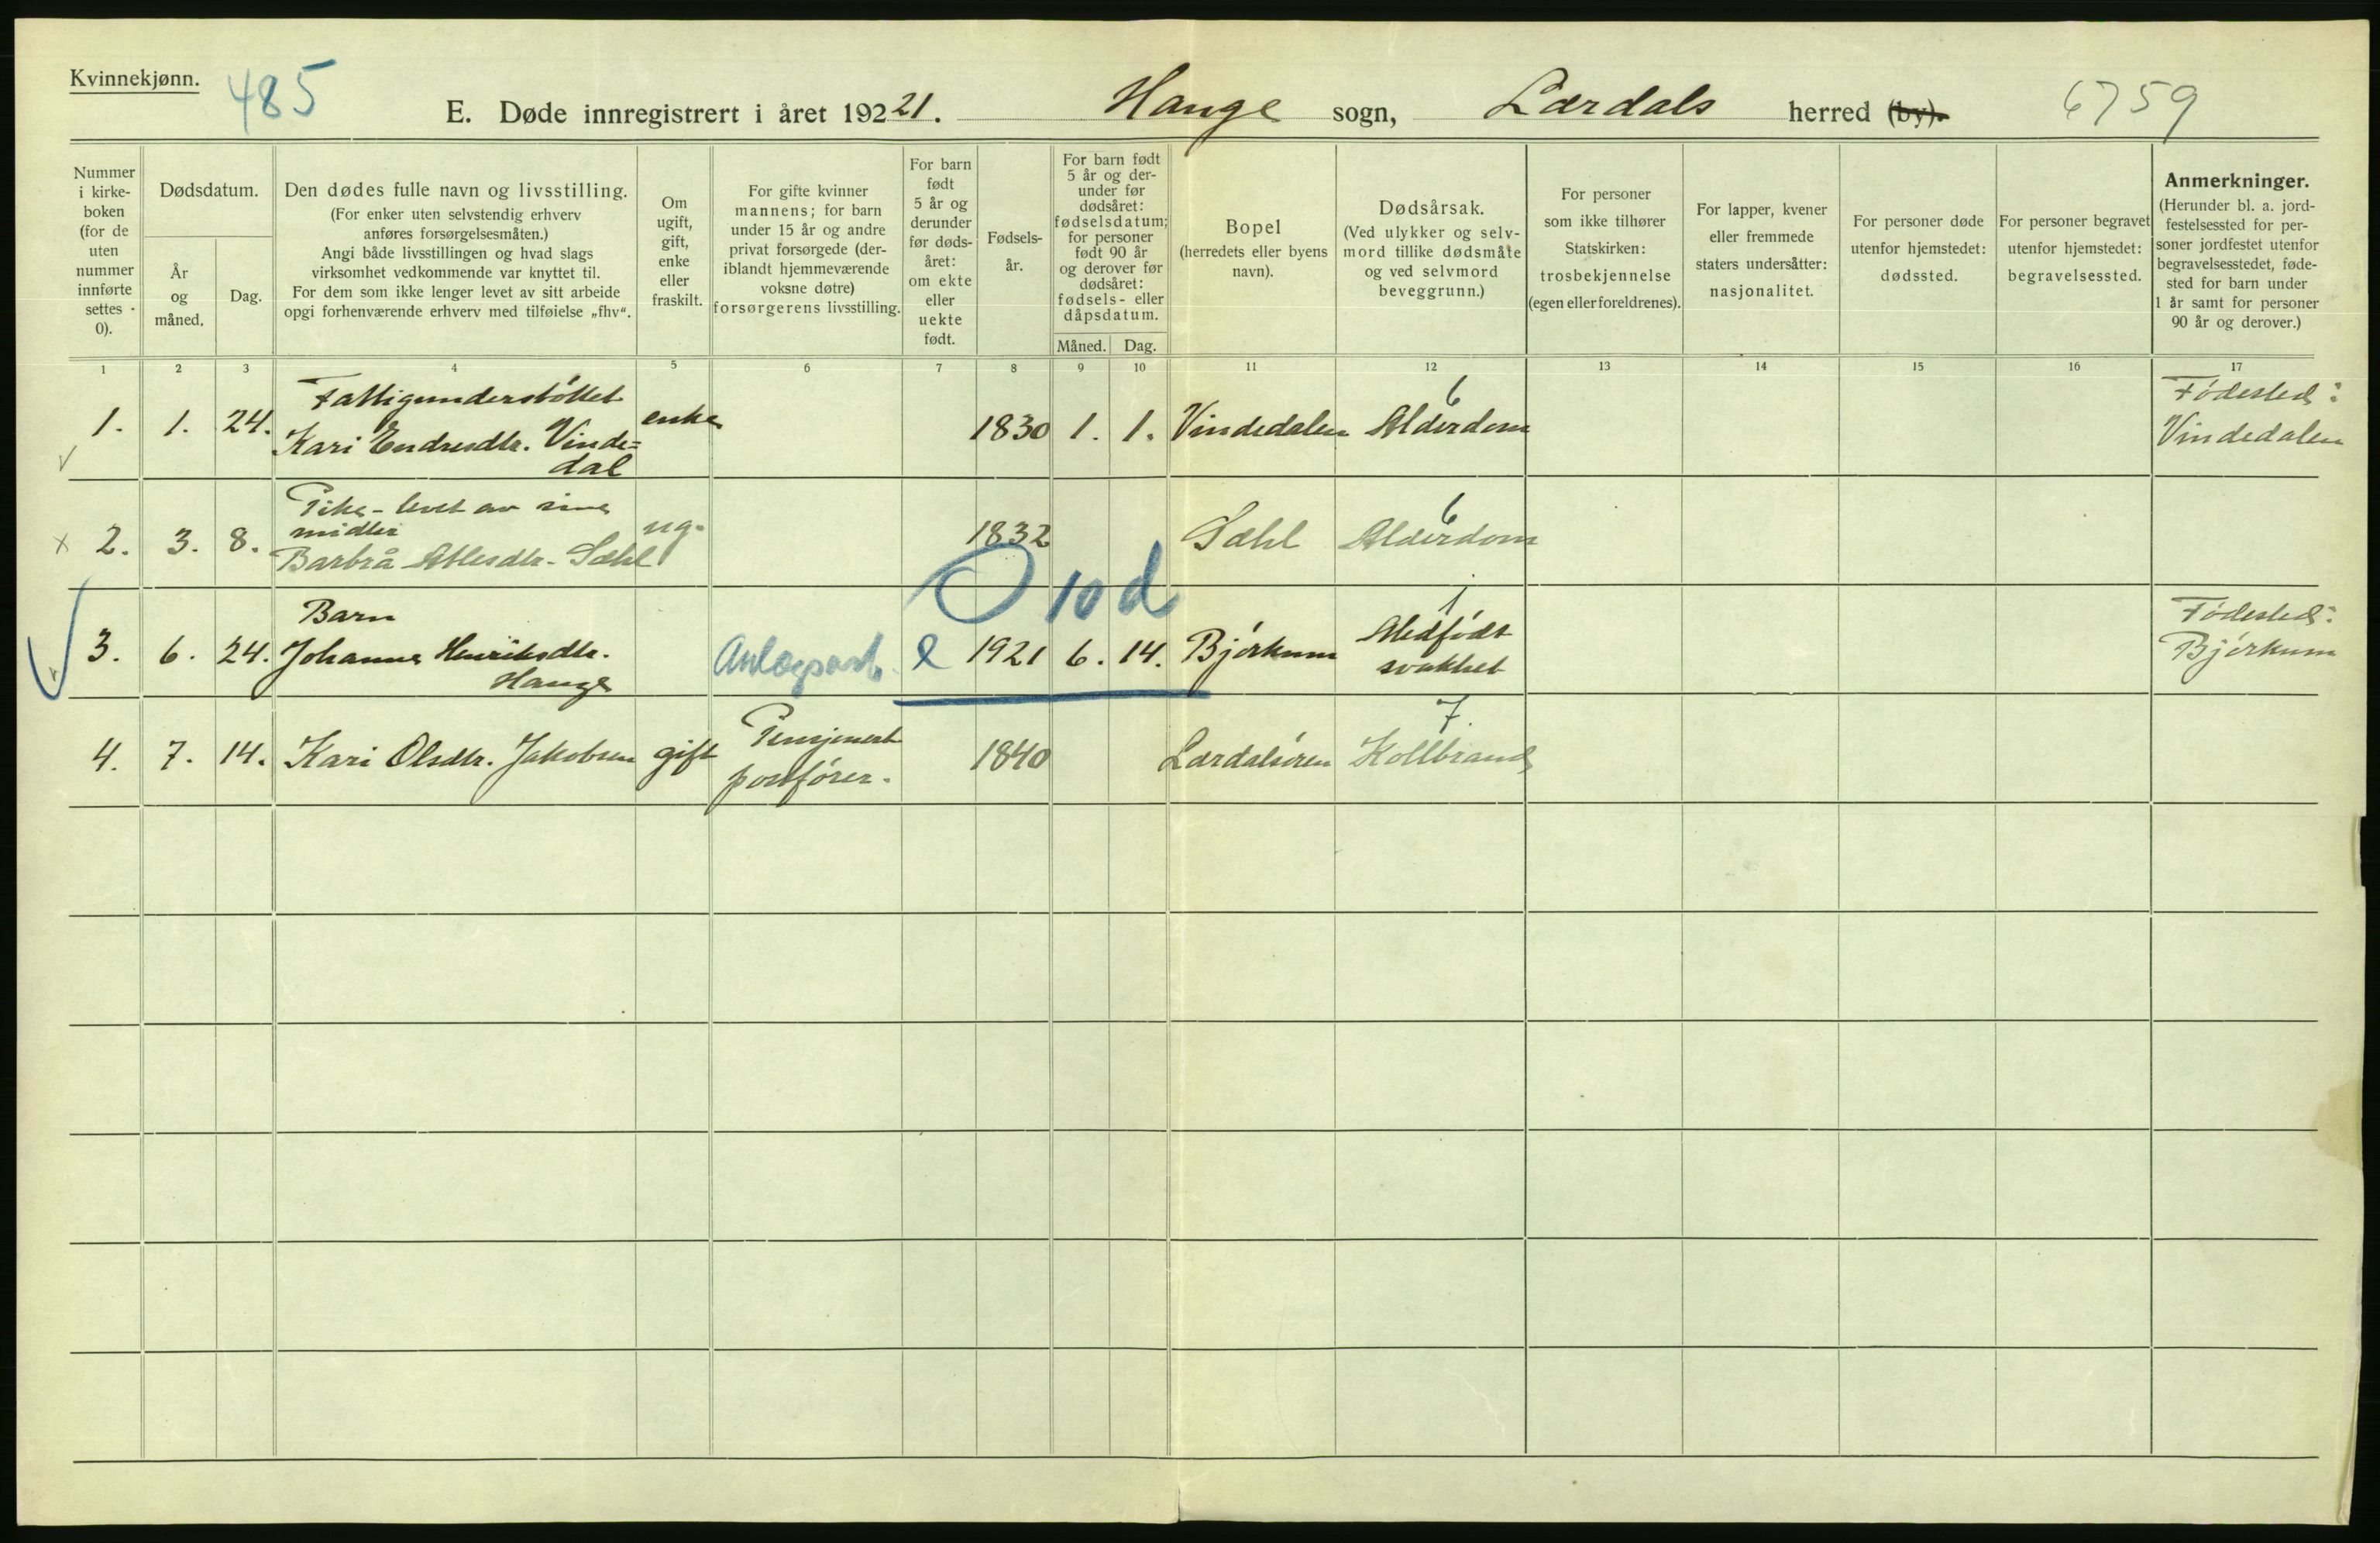 Kvinnekjønn.
485
E. Døde innregistrert i året 19221. Hauge sogn, Lærdals herred (by).
6759
Nummer i kirke-boken (for de uten nummer innførte settes 0).
Dødsdatum.
År og måned.
Dag.
Den dødes fulle navn og livsstilling.
(For enker uten selvstendig erhverv
anføres forsørgelsesmåten.)
Angi både livsstillingen og hvad slags
virksomhet vedkommende var knyttet til.
For dem som ikke lenger levet av sitt arbeide
opgi forhenværende erhverv med tilføielse „fhv“.
Om ugift, gift, enke eller fraskilt.
For gifte kvinner
mannens; for barn
under 15 år og andre
privat forsørgede (der-
iblandt hjemmeværende
voksne døtre)
forsørgerens livsstilling.
For barn
født
5 år og
derunder
før døds-
året:
om ekte
eller
uekte
født.
Fødsels-
år.
For barn født
5 år og der-
under før
dødsåret:
fødselsdatum;
for personer
født 90 år
og derover før
dødsåret:
fødsels- eller
dåpsdatum.
Måned. Dag.
Bopel
(herredets eller byens
navn).
Dødsårsak.
(Ved ulykker og selv-
mord tillike dødsmåte
og ved selvmord
beveggrunn.)
For personer
som ikke tilhører
Statskirken:
trosbekjennelse
(egen eller foreldrenes).
For lapper, kvener
eller fremmede
staters undersåtter:
nasjonalitet.
For personer døde
utenfor hjemstedet:
dødssted.
For personer begravet
utenfor hjemstedet:
begravelsessted.
Anmerkninger.
(Herunder bl. a. jord-
festelsessted for per-
soner jordfestet utenfor
begravelsesstedet, føde-
sted for barn under
1 år samt for personer
90 år og derover.)
1 2 3 4 5 6 7 8 9 10 11 12 13 14 15 16 17
1. 1. 24. Fattigunderstøttet
Kari Endresdtr. Vinde=
dal
enke 1830 1. 1. Vindedalen 6
Alderdom
Fødested:
Vindedalen
2. 3. 8. Pike - levet av sine
midler
Barbrå Atlesdtr. Sæhl
ug. 1832 Sæhl 6
Alderdom
10 d
3. 6. 24. Barn
Johanna Henriksdtr.
Hauge
Anlægsarb. 1921 6. 14. Bjørkum 1
Medfødt
svakhet
Fødested:
Bjørkum
4. 7. 14. Kari Olsdtr. Jakobsen gift Pensjonert
postfører. 1840 Lærdalsøren 7.
Kollbrand